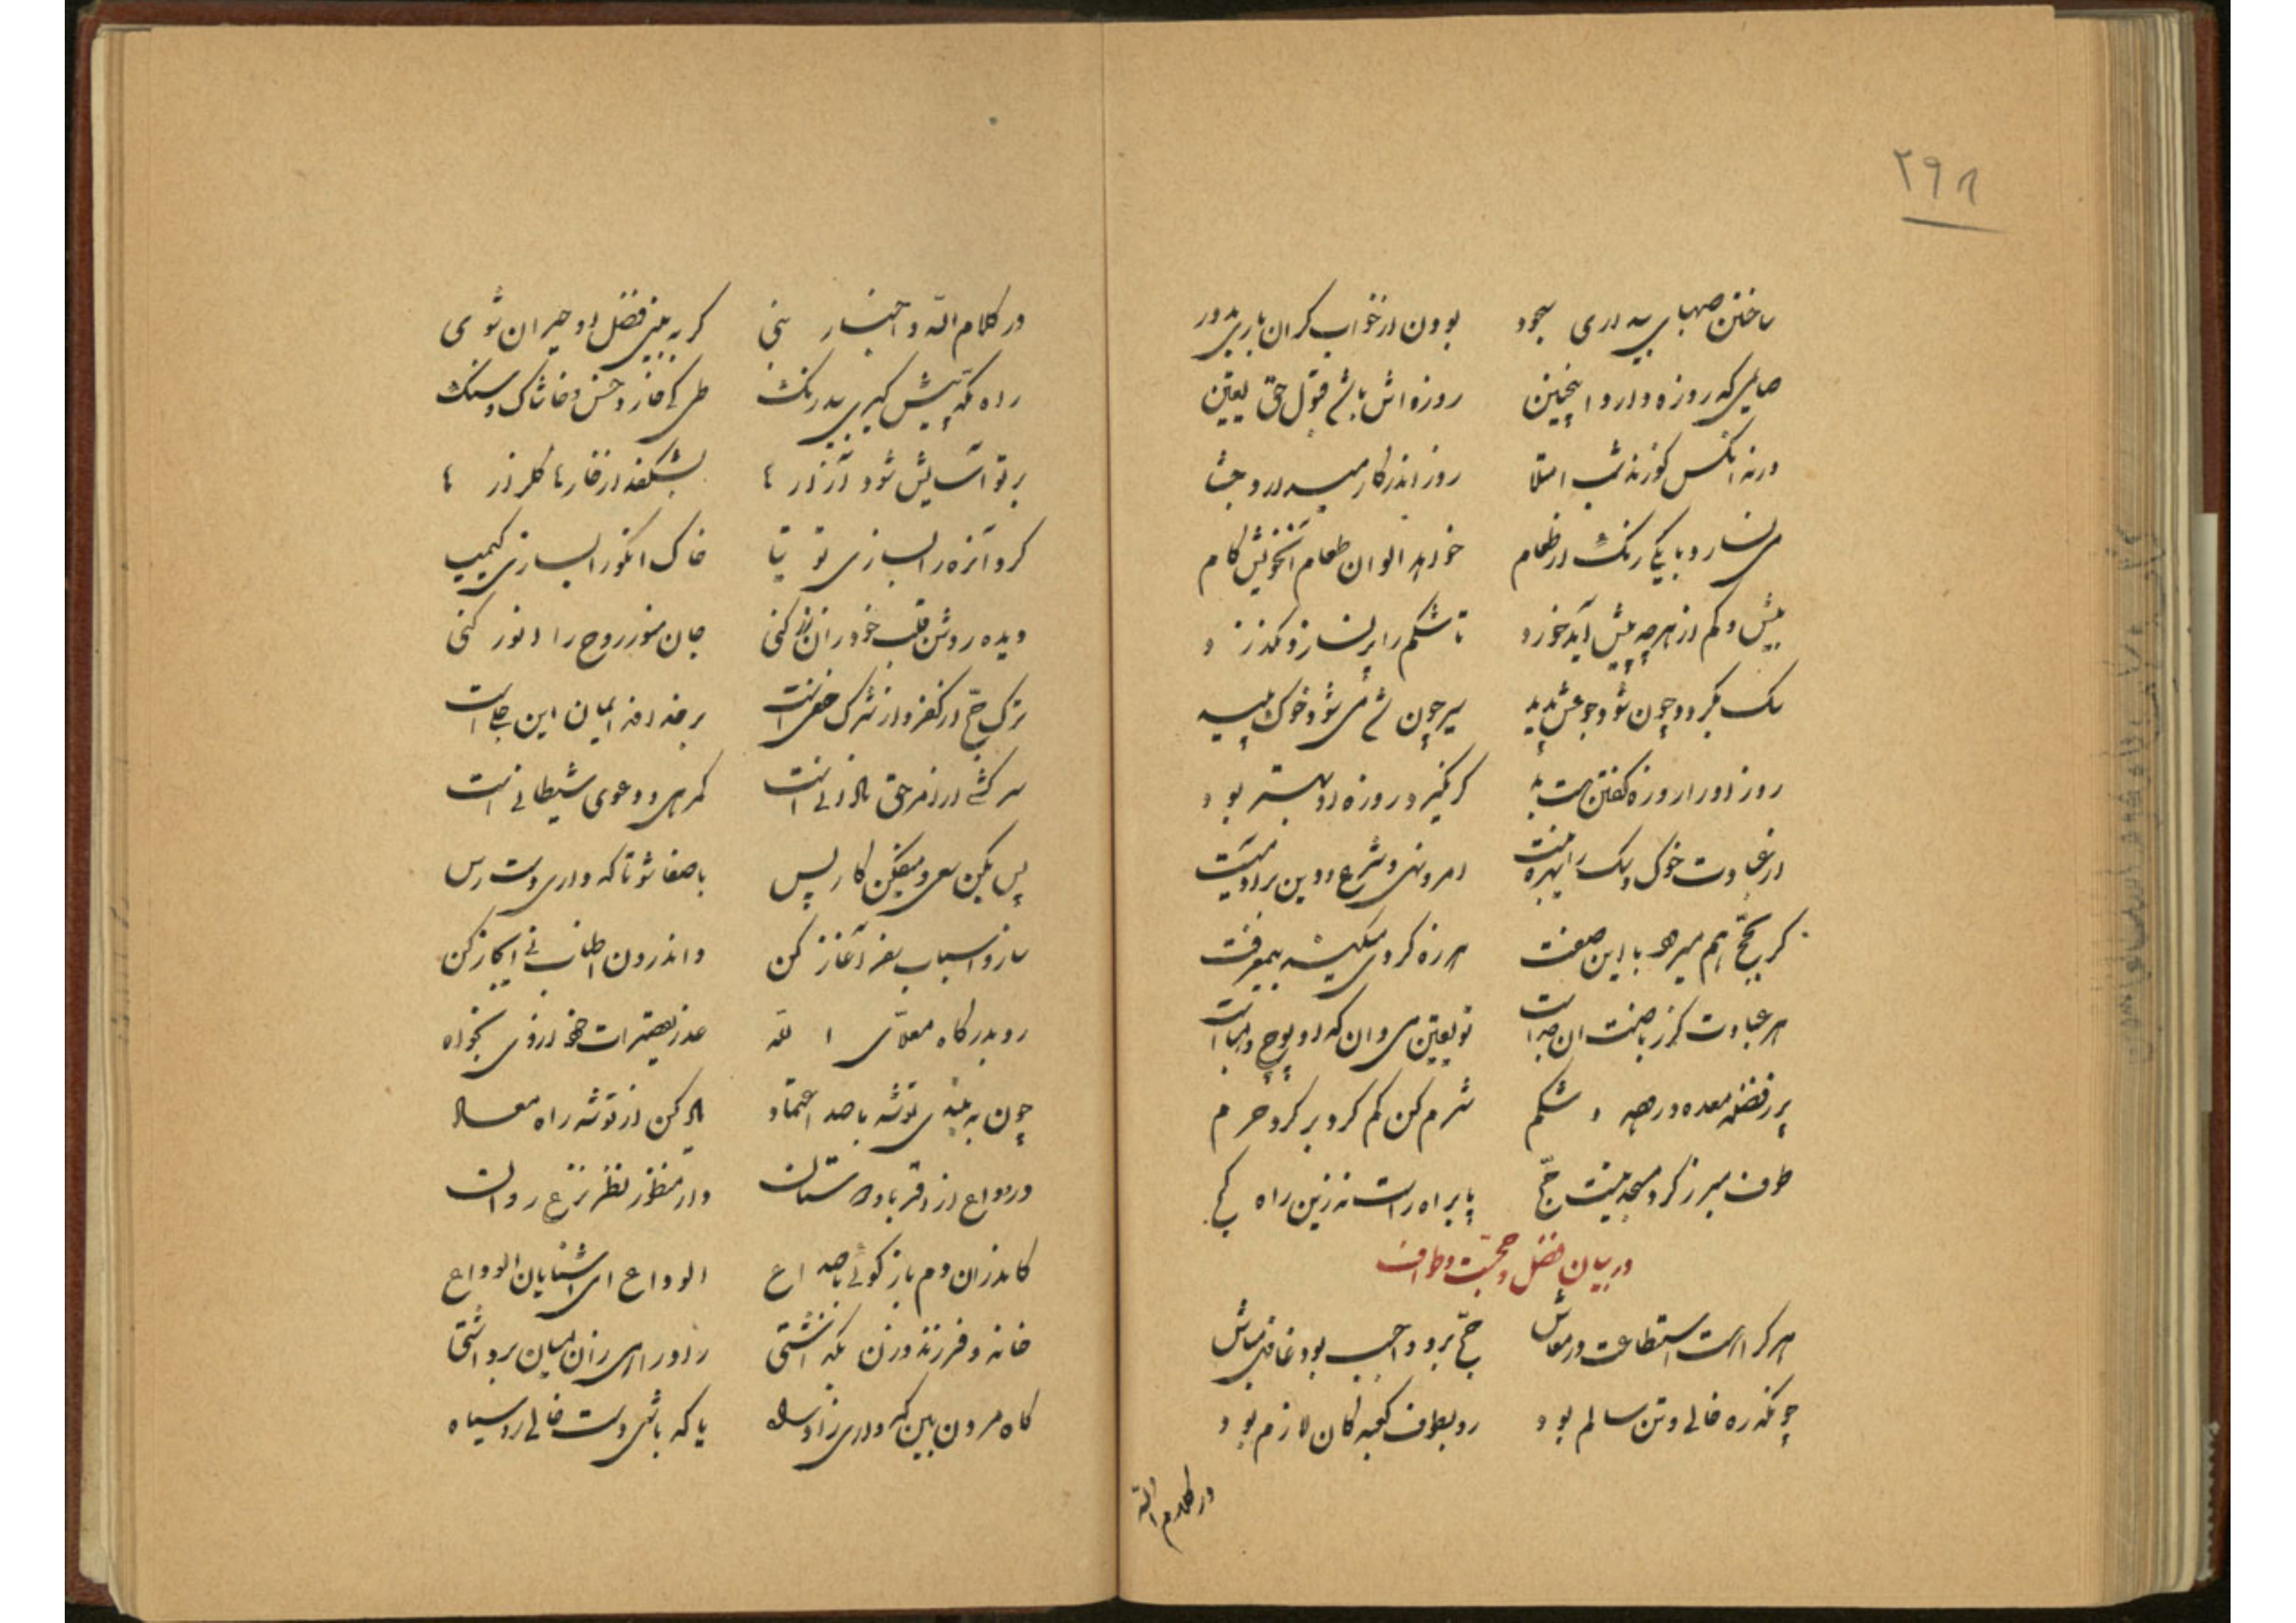 ۲۹۸
ساختن صهبای بیداری سجود بودن از خواب گران باری بدور
صایمی که روزه دارد اینچنین روزه اش باشد قبول حق یقین
ورنه آنکس کو زند شب امتلا روز اندر کار
در طعام خواهد الوان طعام آنخویش کام
بیش و کم از هرچه پیش آید خورد تا شکم را پر نسازد نگذرد
سگ بگردد چون شود جوعش پدید سیر چون شد می شود خوک پلید
روز او را روزه گفتن است بد گر نگیرد روزه او بهتر بود
از عبادت خوک و سگ را بهره نیست امر و نهی و شرع و دین بر او نیست
گر بحج هم میرود با این صفت هرزه گردی میکند بیمعرفت
هر عبادت کز ریاضت آن جداست تو یقین می دان که او پوچ و هباست
پر ز فضله معده و رحیم و شکم شرم کن کم گرد بر گرد حرم
طوف مبرز کرد مسجد نیست حج پا براه راست نه زین راه کج
در بیان فضل حجت و طواف
هر کرا هست استطاعت در معاش حج برو واجب بود غافل مباش
چونکه ره خالی و تن سالم بود رو بطوف کعبه کان لازم بود
در کلام الله
در کلام الله و اخبار نبی گر به بینی فضل او حیران شوی
راه مکه پیش گیری بیدرنگ طی کنی خار و خس و خاشاک و سنگ
بر تو آسایش شود آزارها بشکفد از خارها گلزارها
گرد آنره را بسازی توتیا خاک انکو را بسازی کیمیا
دیده روشن قلب خود زان زر کنی جان منور روح را انور کنی
ترک حج از کفر و از شرک خفی است
سرکشی از امر حق نادانی است گمرهی و دعوی شیطانی است
پس بکن سعی و میفکن کار پس باصفا شو تا که داری دسترس
ساز و اسباب سفر آغاز کن واندرون اطناب نی ایجاز کن
رو بدرگاه معلای اله عذر تقصیرات خود از وی بخواه
چون به بندی توشه با صد اعتماد یاد کن از توشه راه معاد
در وداع از اقربا و دوستان یاد از منظور نظر نزع روان
کاندران دم باز گوئی با صداع الوداع ای آشنایان الوداع
خانه و فرزند و زن بگذاشتی زاد و راه از میان برداشتی
گاه مردن بین که داری زاد راه یا که باشی دست خالی رو سیاه